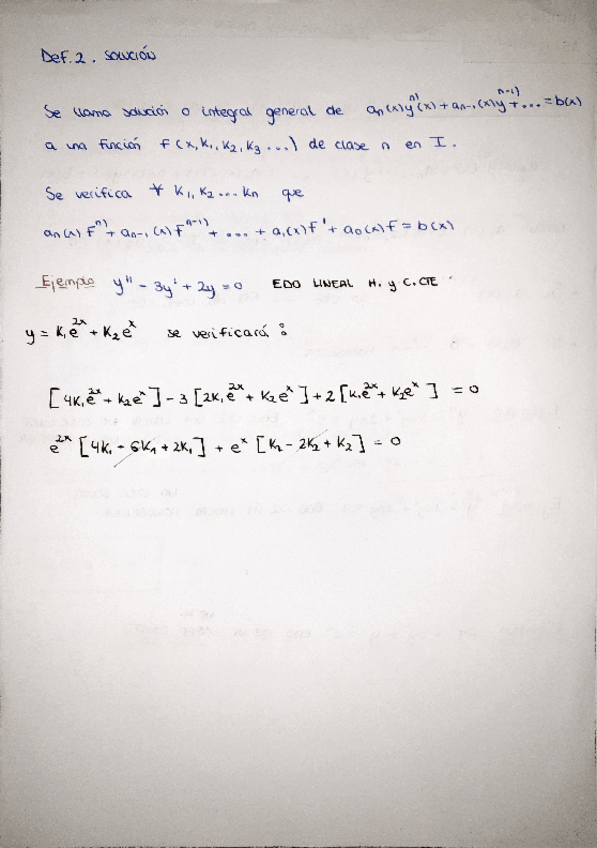 Def. 2. SOLUCIÓN
Se llama solución o integral general de aₙ(x)yⁿ⁾(x) + aₙ₋₁(x)yⁿ⁻¹⁾ + ... = b(x)
a una función f(x, k₁, k₂, k₃ ...) de clase n en I.
Se verifica ∀ k₁, k₂ ... kₙ que
aₙ(x) fⁿ⁾ + aₙ₋₁(x) fⁿ⁻¹⁾ + ... + a₁(x) f' + a₀(x) f = b(x)
Ejemplo y'' - 3y' + 2y = 0 EDO LINEAL H. y C.CTE
y = k₁e²ˣ + k₂eˣ se verificará:
[4k₁e²ˣ + k₂eˣ] - 3 [2k₁e²ˣ + k₂eˣ] + 2 [k₁e²ˣ + k₂eˣ] = 0
e²ˣ [4k₁ - 6k₁ + 2k₁] + eˣ [k₂ - 2k₂ + k₂] = 0